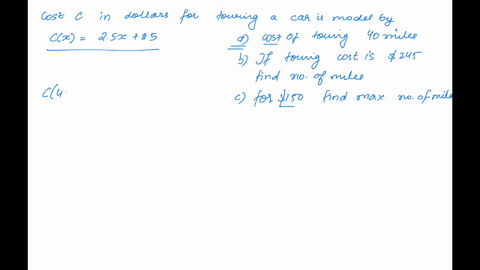 Cost C in dollars for towing a car is model by
C(x) = 2.5x + 85
a) cost of towing 40 miles
b) If towing cost is $245
find no. of miles
C(4
c) for $150 find max no. of miles